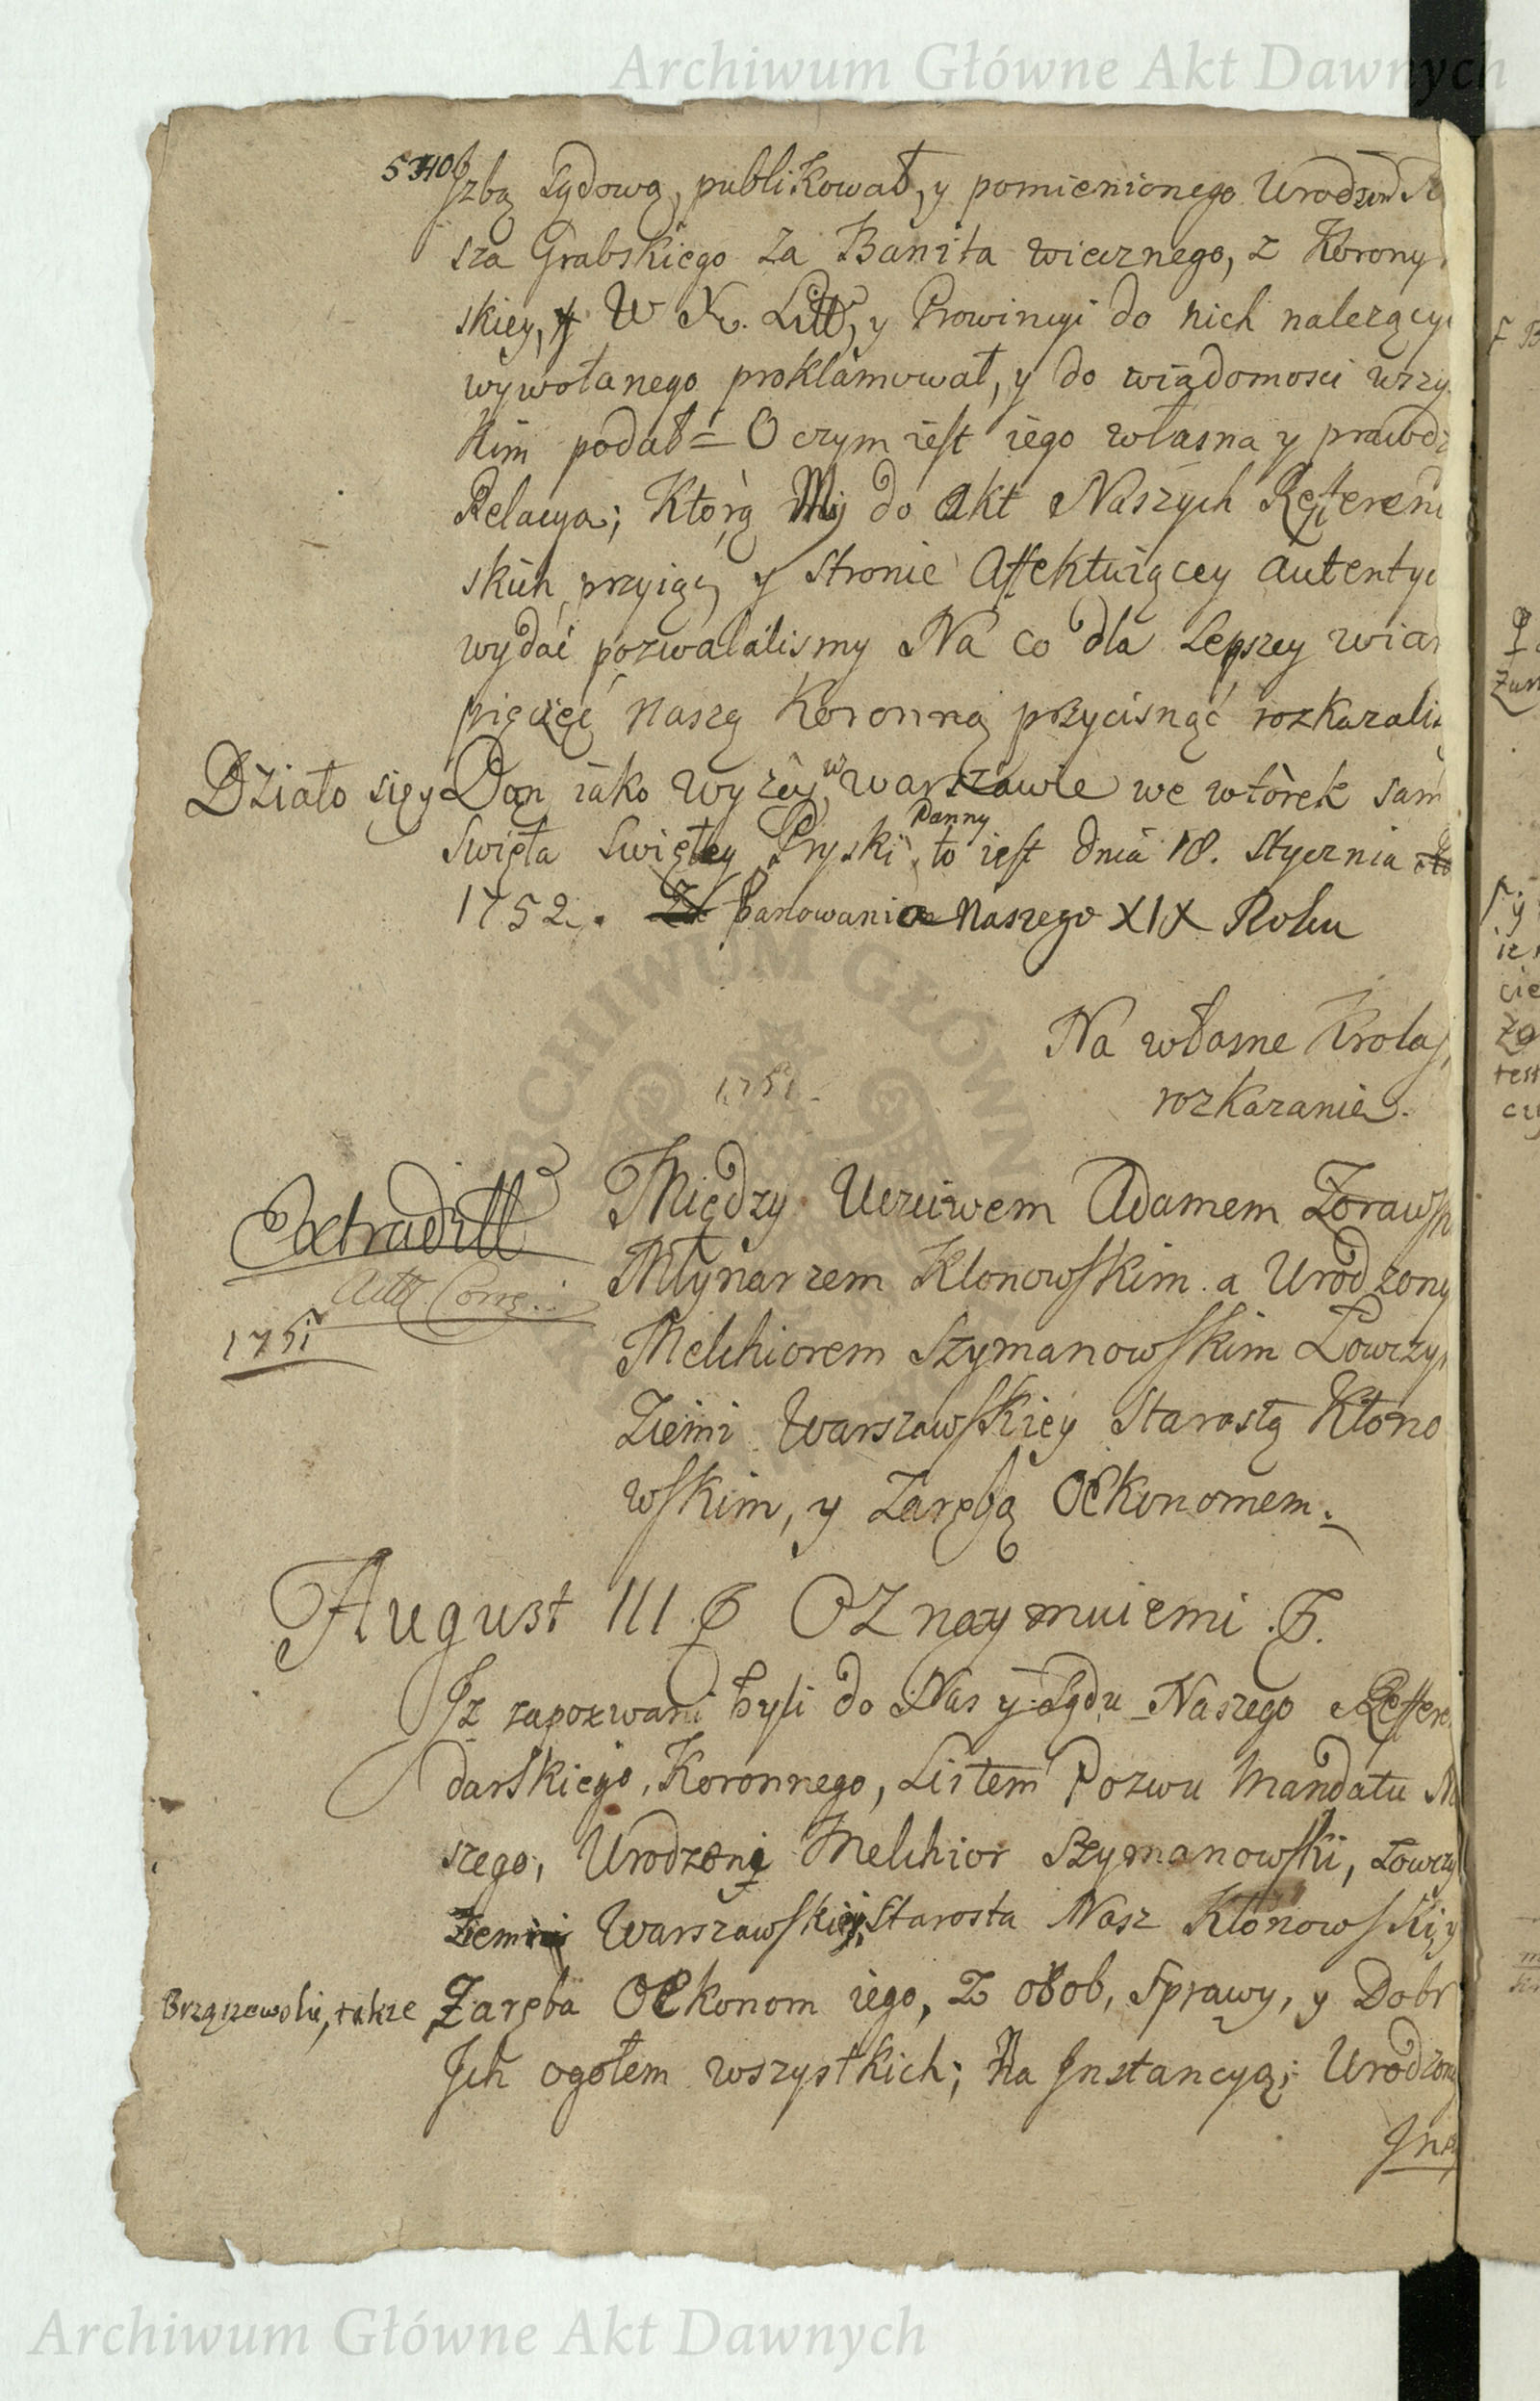 Archiwum Główne Akt Dawnych
Izbą Sądową, publikował, y pomienionego Urodzon
sza Grabskiego za Banita wiecznego, z Korony
skiey, y W X. Litt, y Prowincyi do nich należący
wywołanego proklamował, y do wiadomosci wszy
kim podał = O czym iest iego własna y prawdz
Relacya; Którą My do akt Naszych Refferen
skich przyiąć, y stronie affektuiącey autenty
wydać pozwalalismy Na co dla Lepszey wiar
pieczęć naszą Koronną przycisnąć rozkazalis
Działo się y Dan iako wyżey w Warszawie we wtorek sam
Swięta Swiętey Pryski Panny to iest dnia 18. Stycznia
1752. Panowania Naszego XIX Roku
Na własne Krola
rozkazanie.
1751
Między Uczciwem Adamem Zorawsk
Extraditt
Młynarzem Klonowskim a Urodzony
1751
Melchiorem Szymanowskim Łowczy
Ziemi Warszawskiey Starostą Kłono
wskim, y Zarębą Oekonomem.
August III Oznaymuiemi
Iz zapozwani byli do Nas y Sądu Naszego Reffere
darskiego Koronnego, Listem Pozwu Mandatu Na
szego, Urodzoni Melchior Szymanowski, Łowczy
Ziemi Warszawskiey, Starosta Nasz Kłonowski, y
Brzązowski, także Zaręba Oekonom iego, Z osob, Sprawy, y Dobr
Ich ogołem wszystkich; Na Instancyą; Urodzon
Ins
Archiwum Główne Akt Dawnych